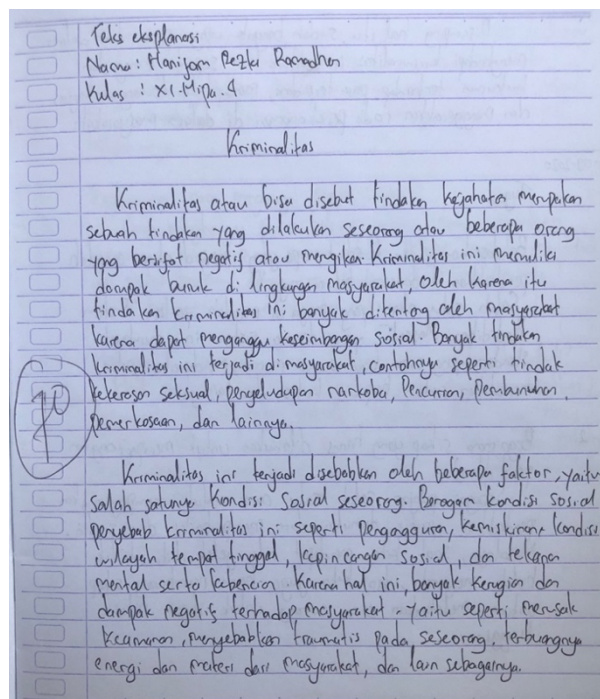 Teks eksplanasi
Nama : Hanifam Rezki Ramadhan
Kelas : XI.Mipa.4
Kriminalitas
Kriminalitas atau bisa disebut tindakan kejahatan merupakan
sebuah tindakan yang dilakukan seseorang atau beberapa orang
yang bersifat negatif atau merugikan. Kriminalitas ini memiliki
dampak buruk di lingkungan masyarakat, oleh karena itu
tindakan kriminalitas ini banyak ditentang oleh masyarakat
karena dapat menganggu keseimbangan sosial. Banyak tindakan
kriminalitas ini terjadi di masyarakat, contohnya seperti tindak
kekerasan seksual, penyeludupan narkoba, Pencurian, Pembunuhan,
pemerkosaan, dan lainnya.
Kriminalitas ini terjadi disebabkan oleh beberapa faktor, yaitu
salah satunya Kondisi Sosial seseorang. Beragam kondisi sosial
penyebab kriminalitas ini seperti pengangguran, kemiskinan, kondisi
wilayah tempat tinggal, kepincangan sosial, dan tekanan
mental serta kebencian. Karena hal ini, banyak kerugian dan
dampak negatif terhadap masyarakat. yaitu seperti merusak
keamanan, menyebabkan traumatis pada seseorang, terbuangnya
energi dan materi dari masyarakat, dan lain sebagainya.